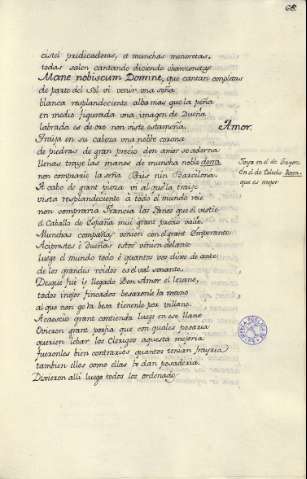 68.
cistel predicaderas, et munchas menoretas,
todas salen cantando diciendo chanzonetas
Mane nobiscum Domine, que cantan completas
de parte del Sol vi venir una seña
blanca resplandeciente alba mas que la peña
en medio figurada una imagen de Dueña
labrada es de oro non viste estameña. Amor.
Traya en su cabeza una noble corona
de piedras de grant precio, con amor se aderna
llenas traye las manos de muncha noble dona
non comprarie la seña Paris nin Barcelona.
A cabo de grant pieza vi al que la traye
vista resplandeciente a todo el mundo rie
non compraria Francia los Panos que el vestie
el Caballo de España muy grant precio valie.
Munchas compañas venien con el grant Emperante
Aciprestes é Dueñas estos vienen delante
luego el mundo todo é quantos vos dixe de ante
de los grandes roidos es el val sonante.
Desque fué y llegado Don Amor el lozano,
todos inojos fincados besaronle la mano
al que non ge la besa tienenlo por villano.
Acaesció grant contienda luego en ese llano
Ovieron grant porfia que con quales posaria
querien lebar los Clerigos aquesta mejoria
fueronles bien contrarios quantos tenian frayria
tambien ellos como ellas le dan posaderia.
Dixieron alli luego todos los ordenados
Traya en el de Gayoso
En el de Toledo Dona.
que es mejor